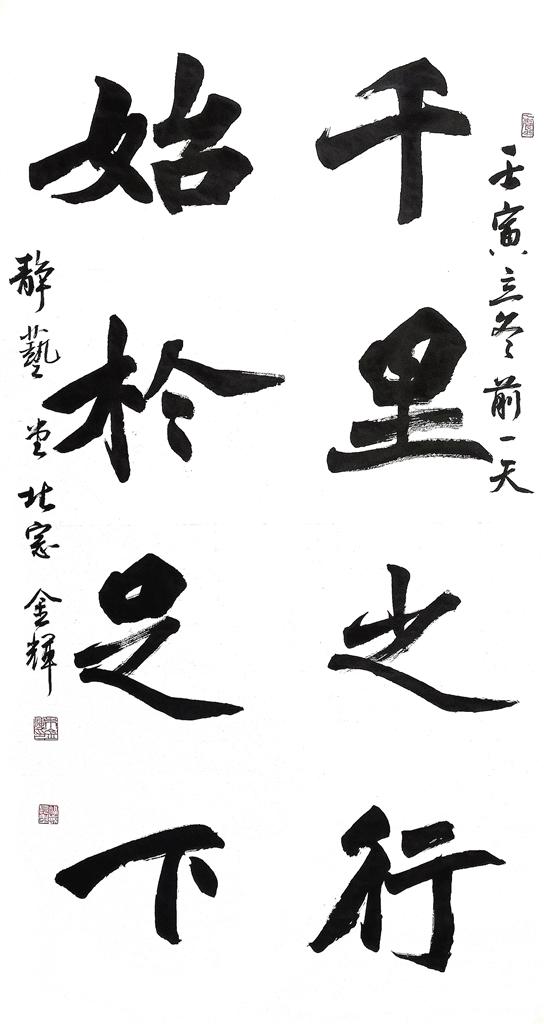 壬寅立冬前一天
千里之行
始於足下
静藝堂北窓金輝